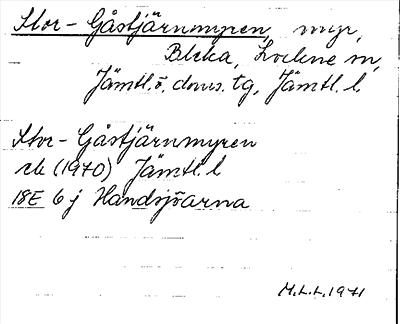 Stor-Gåstjärnmyren, myr,
Bleka, Lockne sn,
Jämtl. ö. doms. tg, Jämtl. l
Stor-Gåstjärnmyren
rek (1970) Jämtl. l
18E 6j Handsjöarna
M.L.L. 1971